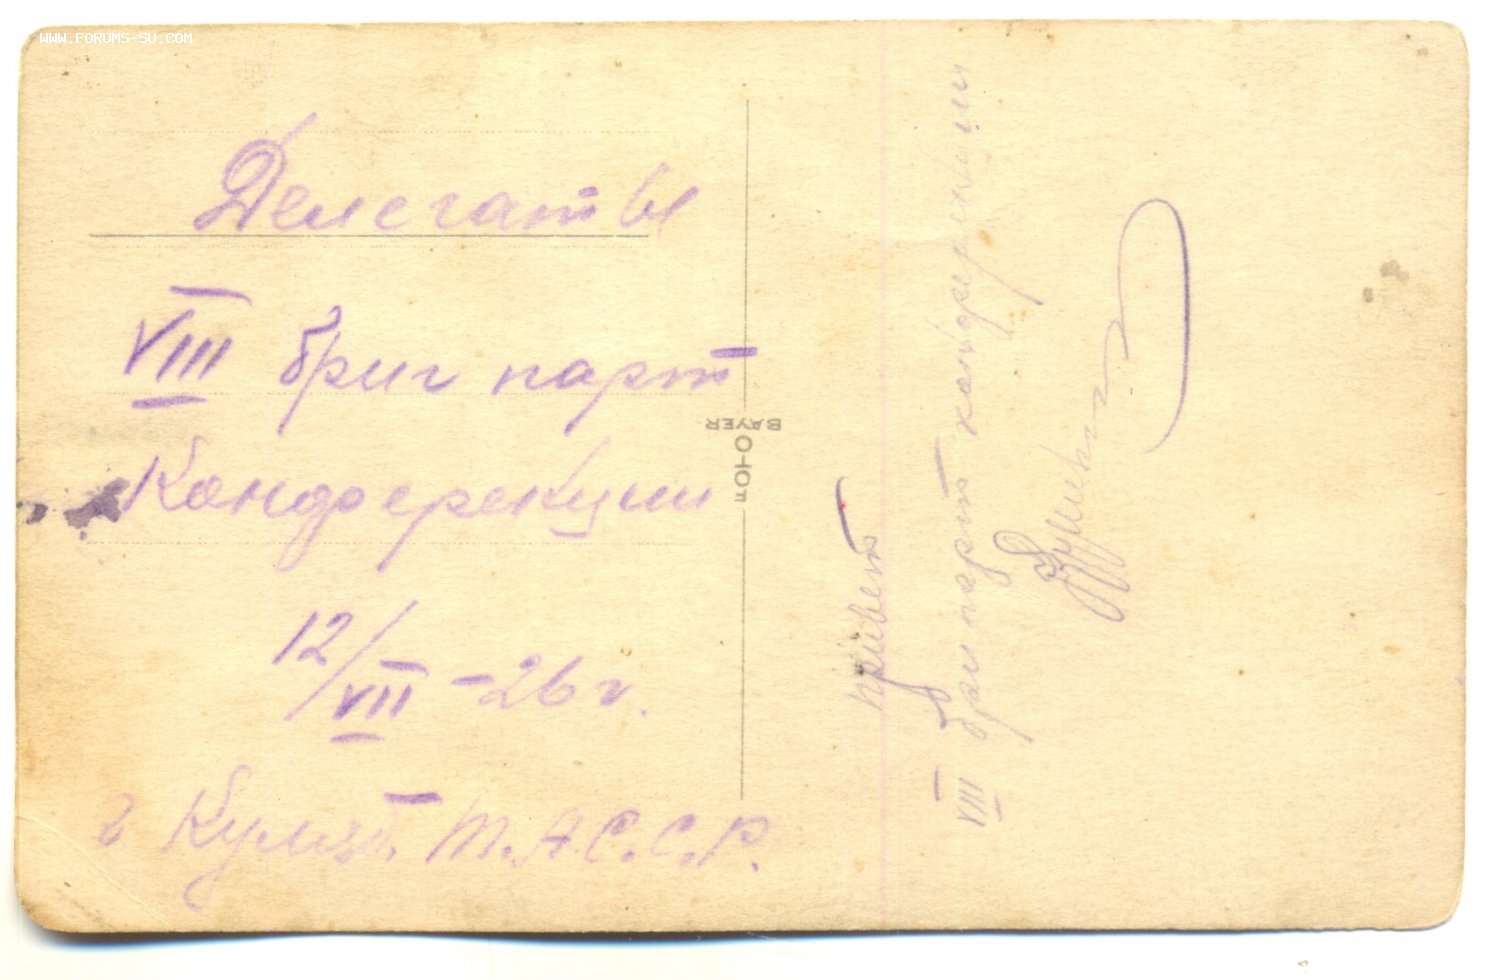 WWW.FORUMS-SU.COM
Делегаты
VIII бриг парт
Конференции
12/VII -26 г.
г Куляб. Т.А.С.С.Р.
BAYER
привет
VIII бриг парт конференции